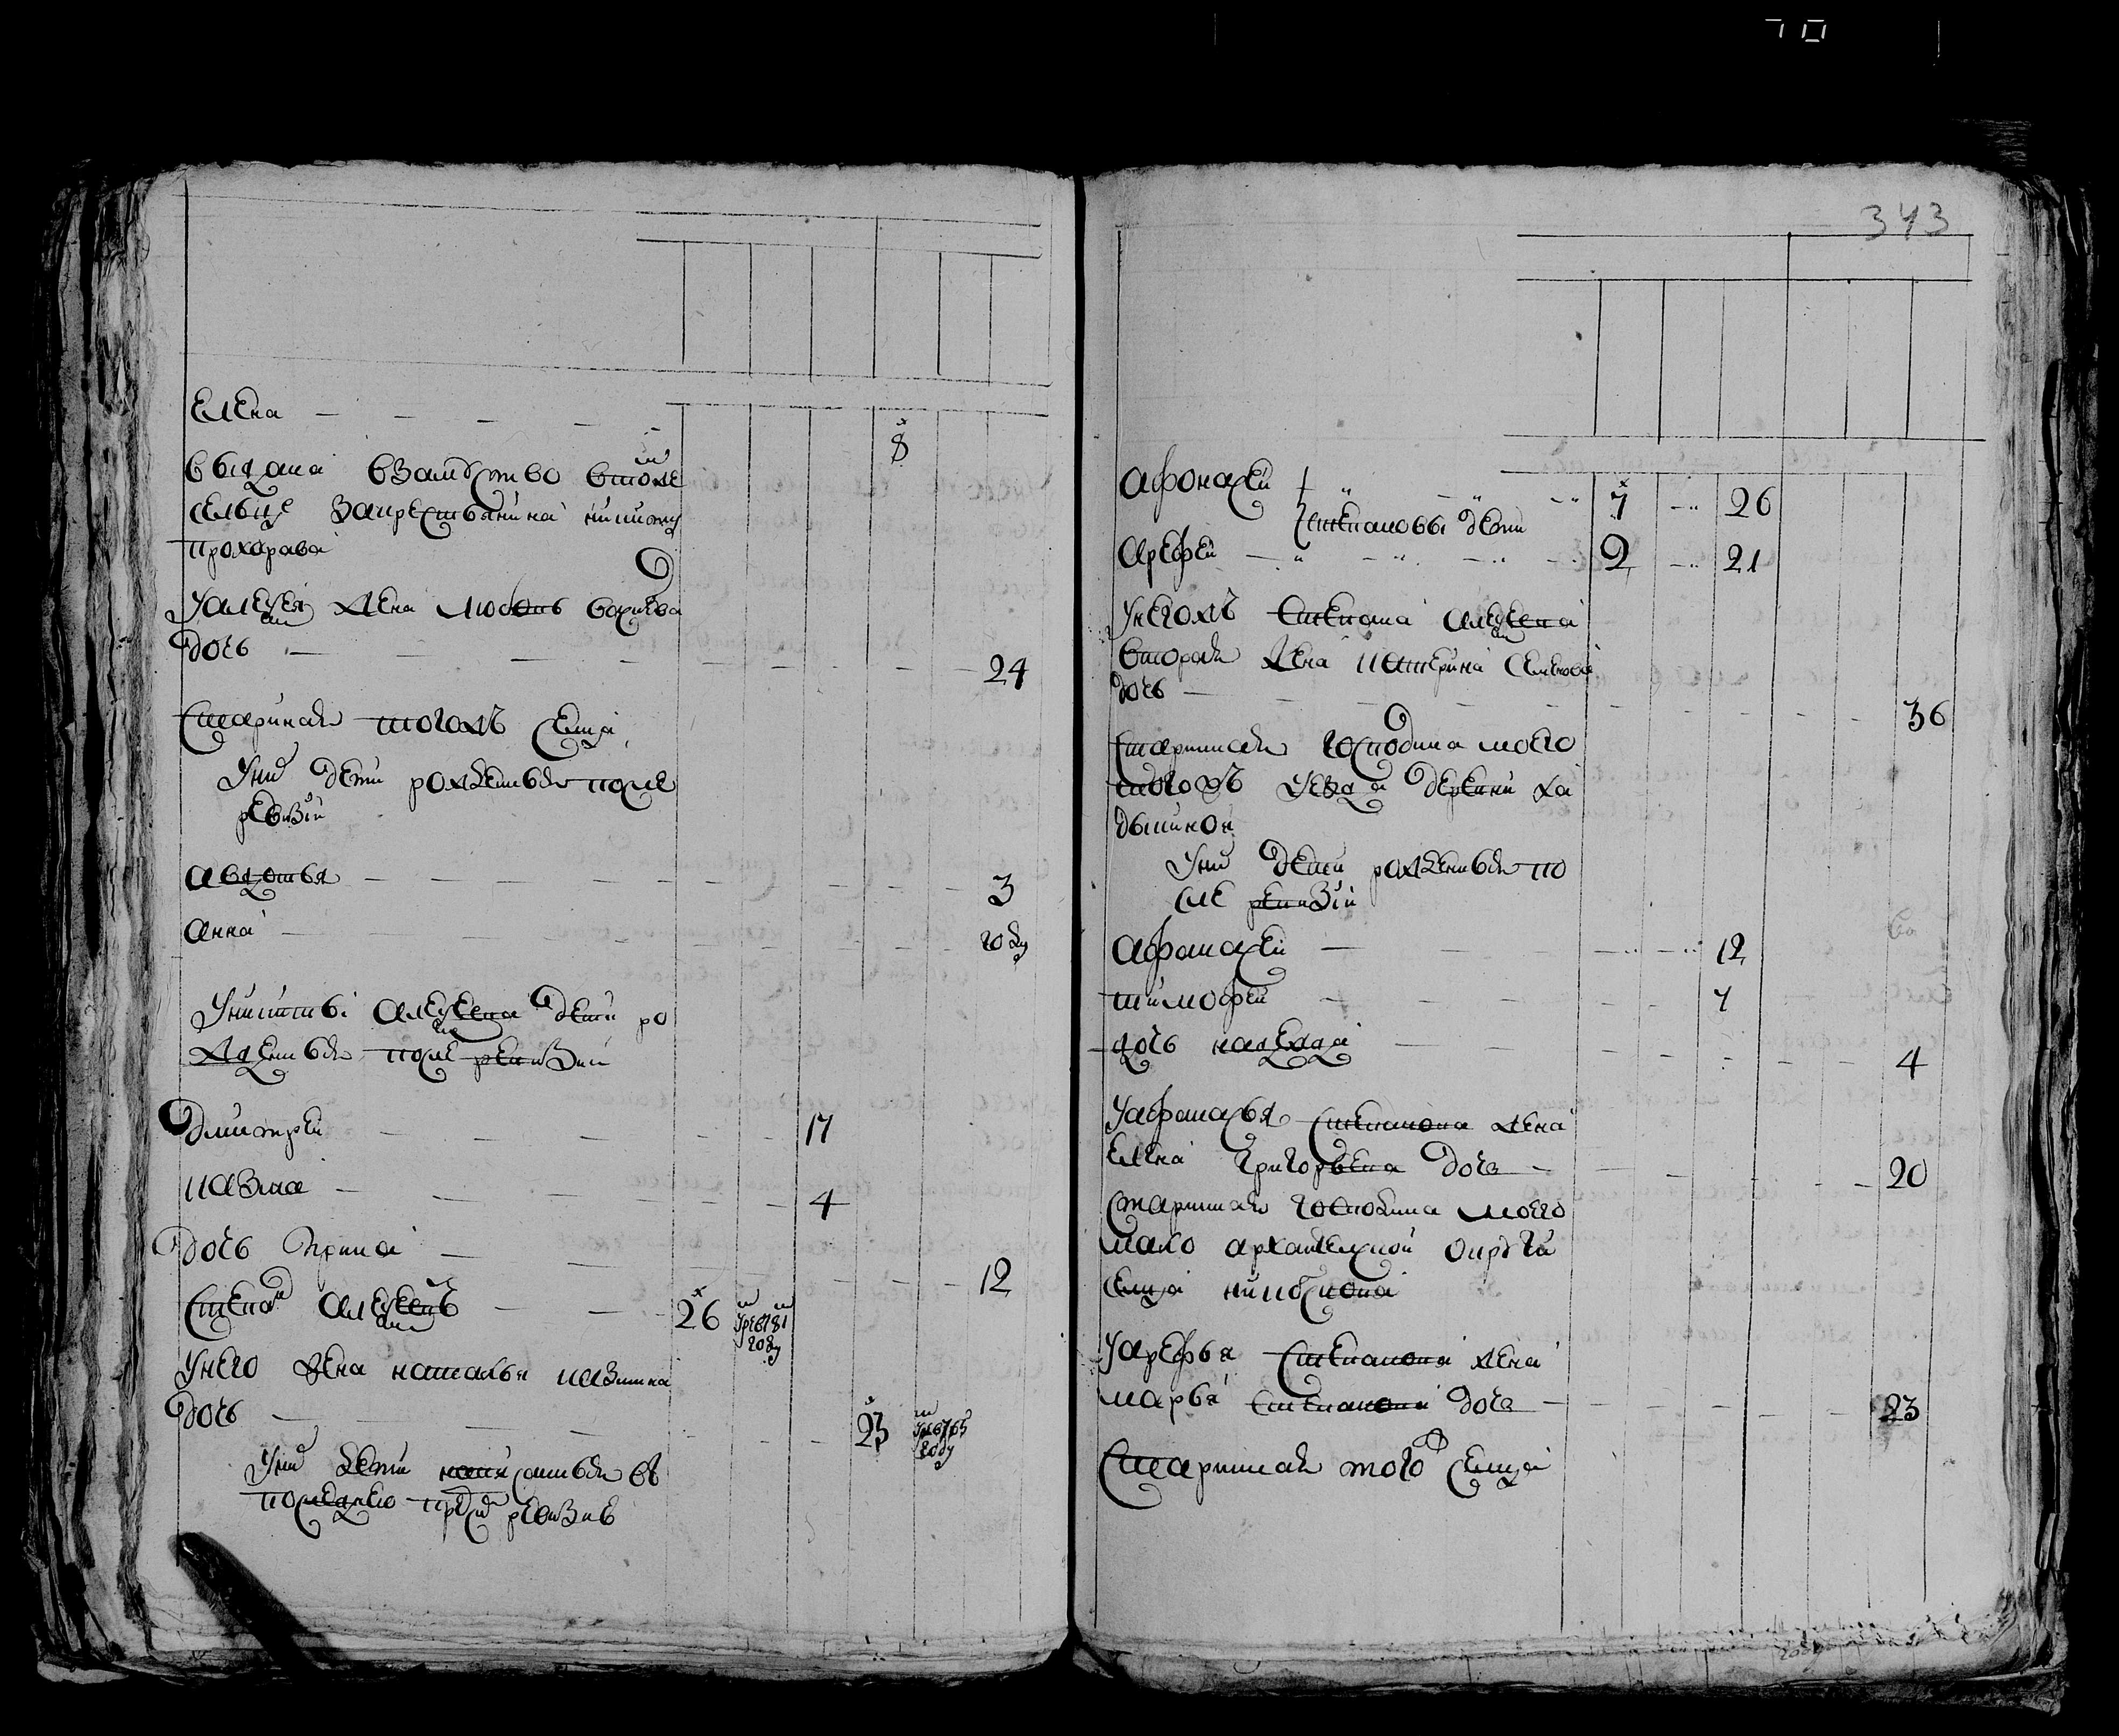 343
Елена — — — — 8
выдана взамуство втомже
сельце закрестьянина никиту
прохорава
Уалексея жена любовь
дочь — — — 24
Старинная тогожъ селца
Уних дети рожденныя после
ревизии
авдотья — — — 3
анна — — — году
Уникиты алексеева дети ро
жденныя после ревизии
дмитрей — — — 17
козма — — — 4
дочь Ирина — — — 12
Степан алексеевъ — — 26 умре въ 781 году
Унего жена наталья козмина
дочь — — — 23 умре 765 году
Уних дети написанныя въ
последнею пред сим ревизие
афонасей 7 26
степановы дети
Арефей — — — 2 21
Унегожъ степана алексеева
вторая жена катерина
дочь — — — 36
Старинная господина моего
тогожъ уезда деревни ха
дыкиной
Уних дети рожденныя по
сле ревизии
Афонасей — — — 12
тимофей — — — 7
дочь надежда — — — 4
Уафонасья степанова жена
Елена григорьева дочь — — 20
Старинная господина моего
мало архангелской округи
селца никольскова
Уарефья степанова жена
марья степанова дочь — — 23
Старинная того ж селца